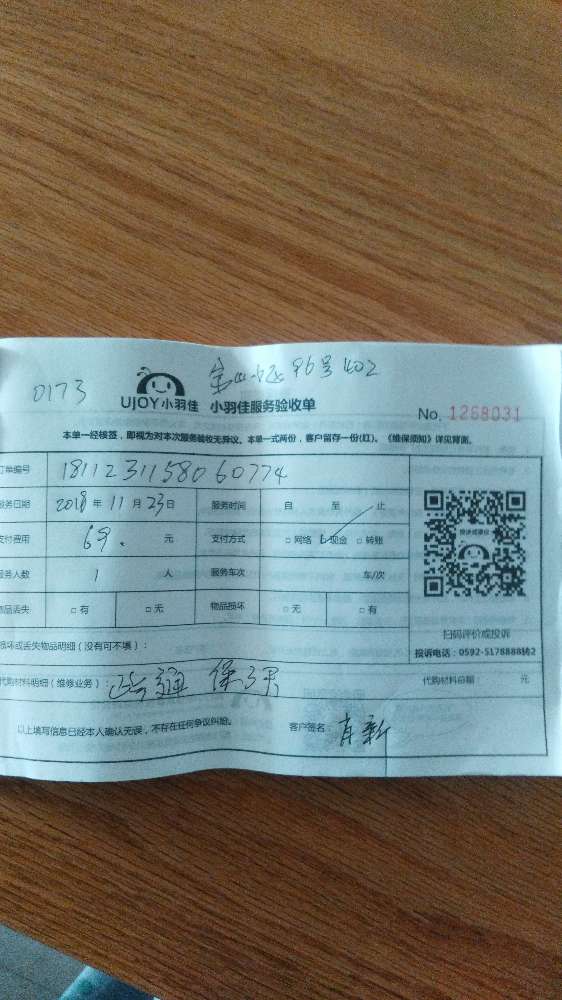 0173
96号402
UJOY小羽佳 小羽佳服务验收单
No. 1268031
本单一经核签，即视为对本次服务验收无异议。本单一式两份，客户留存一份(红)。《维保须知》详见背面。
订单编号 1811231158060774
服务日期 2018 年 11 月 23 日 服务时间 自 至 止
支付费用 69. 元 支付方式 □ 网络 □ 现金 □ 转账
服务人数 1 人 服务车次 车/次
物品丢失 □ 有 □ 无 物品损坏 □ 无 □ 有
投诉或建议
扫码评价或投诉
投诉电话：0592-5178888转2
损坏或丢失物品明细（没有可不填）：
代购材料明细（维修业务）： 通 保3月 代购材料份额： 元
以上填写信息已经本人确认无误，不存在任何争议纠纷。 客户签名： 肖新